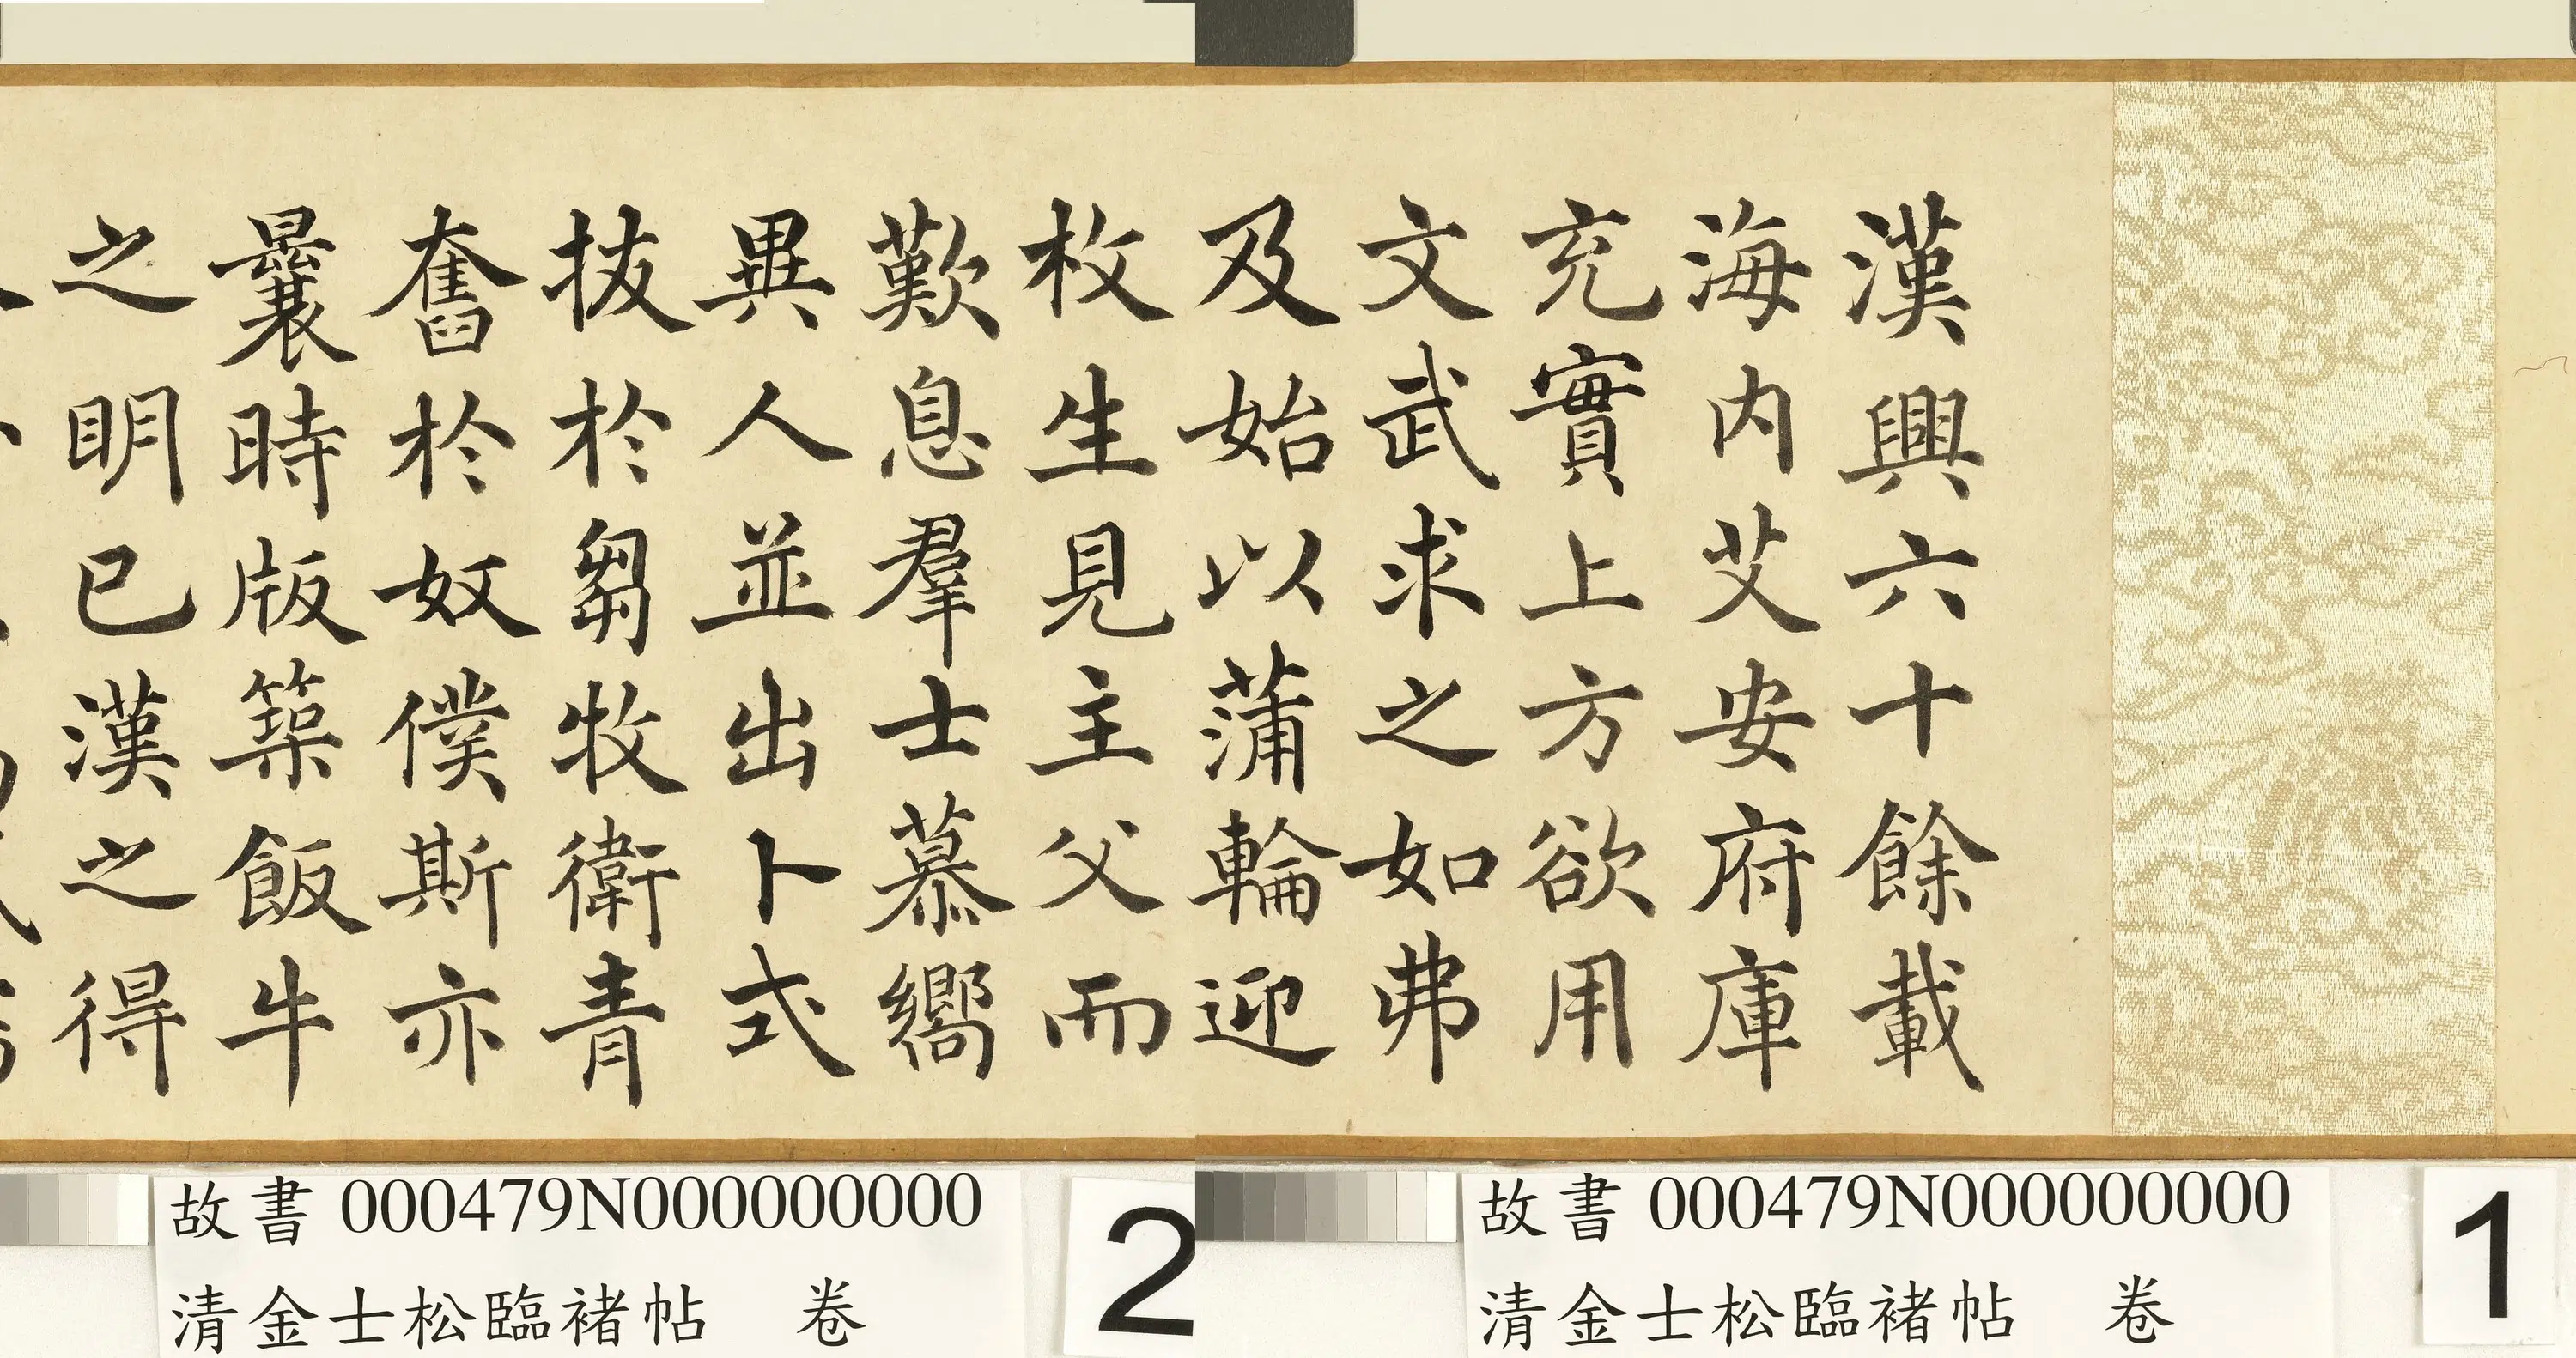 漢興六十餘載
海內艾安府庫
充實上方欲用
文武求之如弗
及始以蒲輪迎
枚生見主父而
歎息羣士慕嚮
異人並出卜式
拔於芻牧衛青
奮於奴僕斯亦
曩時版築飯牛
之明已漢之得
故書 000479N000000000
清金士松臨褚帖 卷
1
故書 000479N000000000
清金士松臨褚帖 卷
2